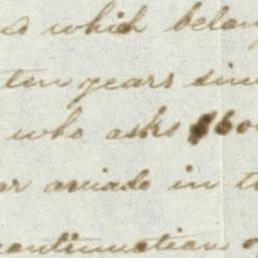 which belong
ten years since
who asks $600
in
continuation of